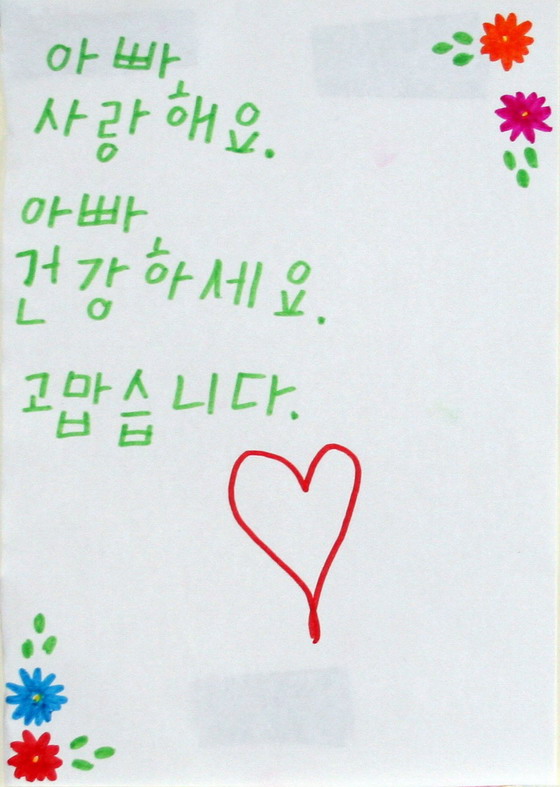 아빠
사랑해요.
아빠
건강하세요.
고맙습니다.